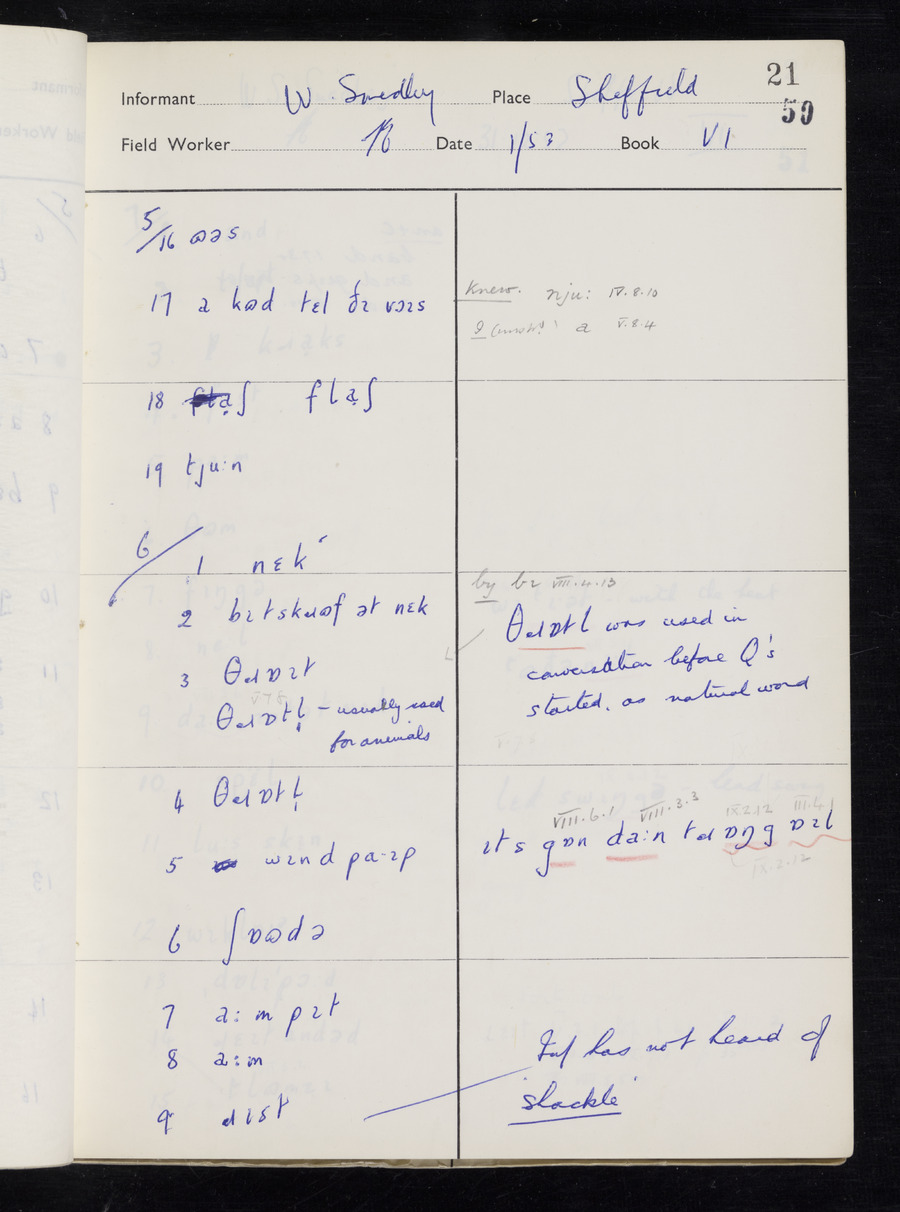 21
Informant W. Smedley Place Sheffield
59
Field Worker Date 1/53 Book VI
5/16 ɷəs
17 a kɷd tɛl ðɪ vɔɪs
Knew. nju: IV.8.10
a V.8.4
18 fla̠ʃ
19 tju:n
6/ 1 nɛk
by bɪ VIII.4.13
2 bɪtskɹɷf ət nɛk
θɹɒtl was used in
conversation before Q's
started, as natural word
3 θɹɒɪt
θɹɒtl̩ – usually used
for animals
4 θɹɒtl̩
VIII.6.1 VIII.3.3 IX.2.12 III.4.1
ɪts gɒn da:n tɹ ɒŋg ɒɪl
IX.2.12
5 wɪnd pa·ɪp
6 ʃɒɷdə
7 a: m pɪt
8 a:m
9 ɹɪst
Inf has not heard of
'shackle'